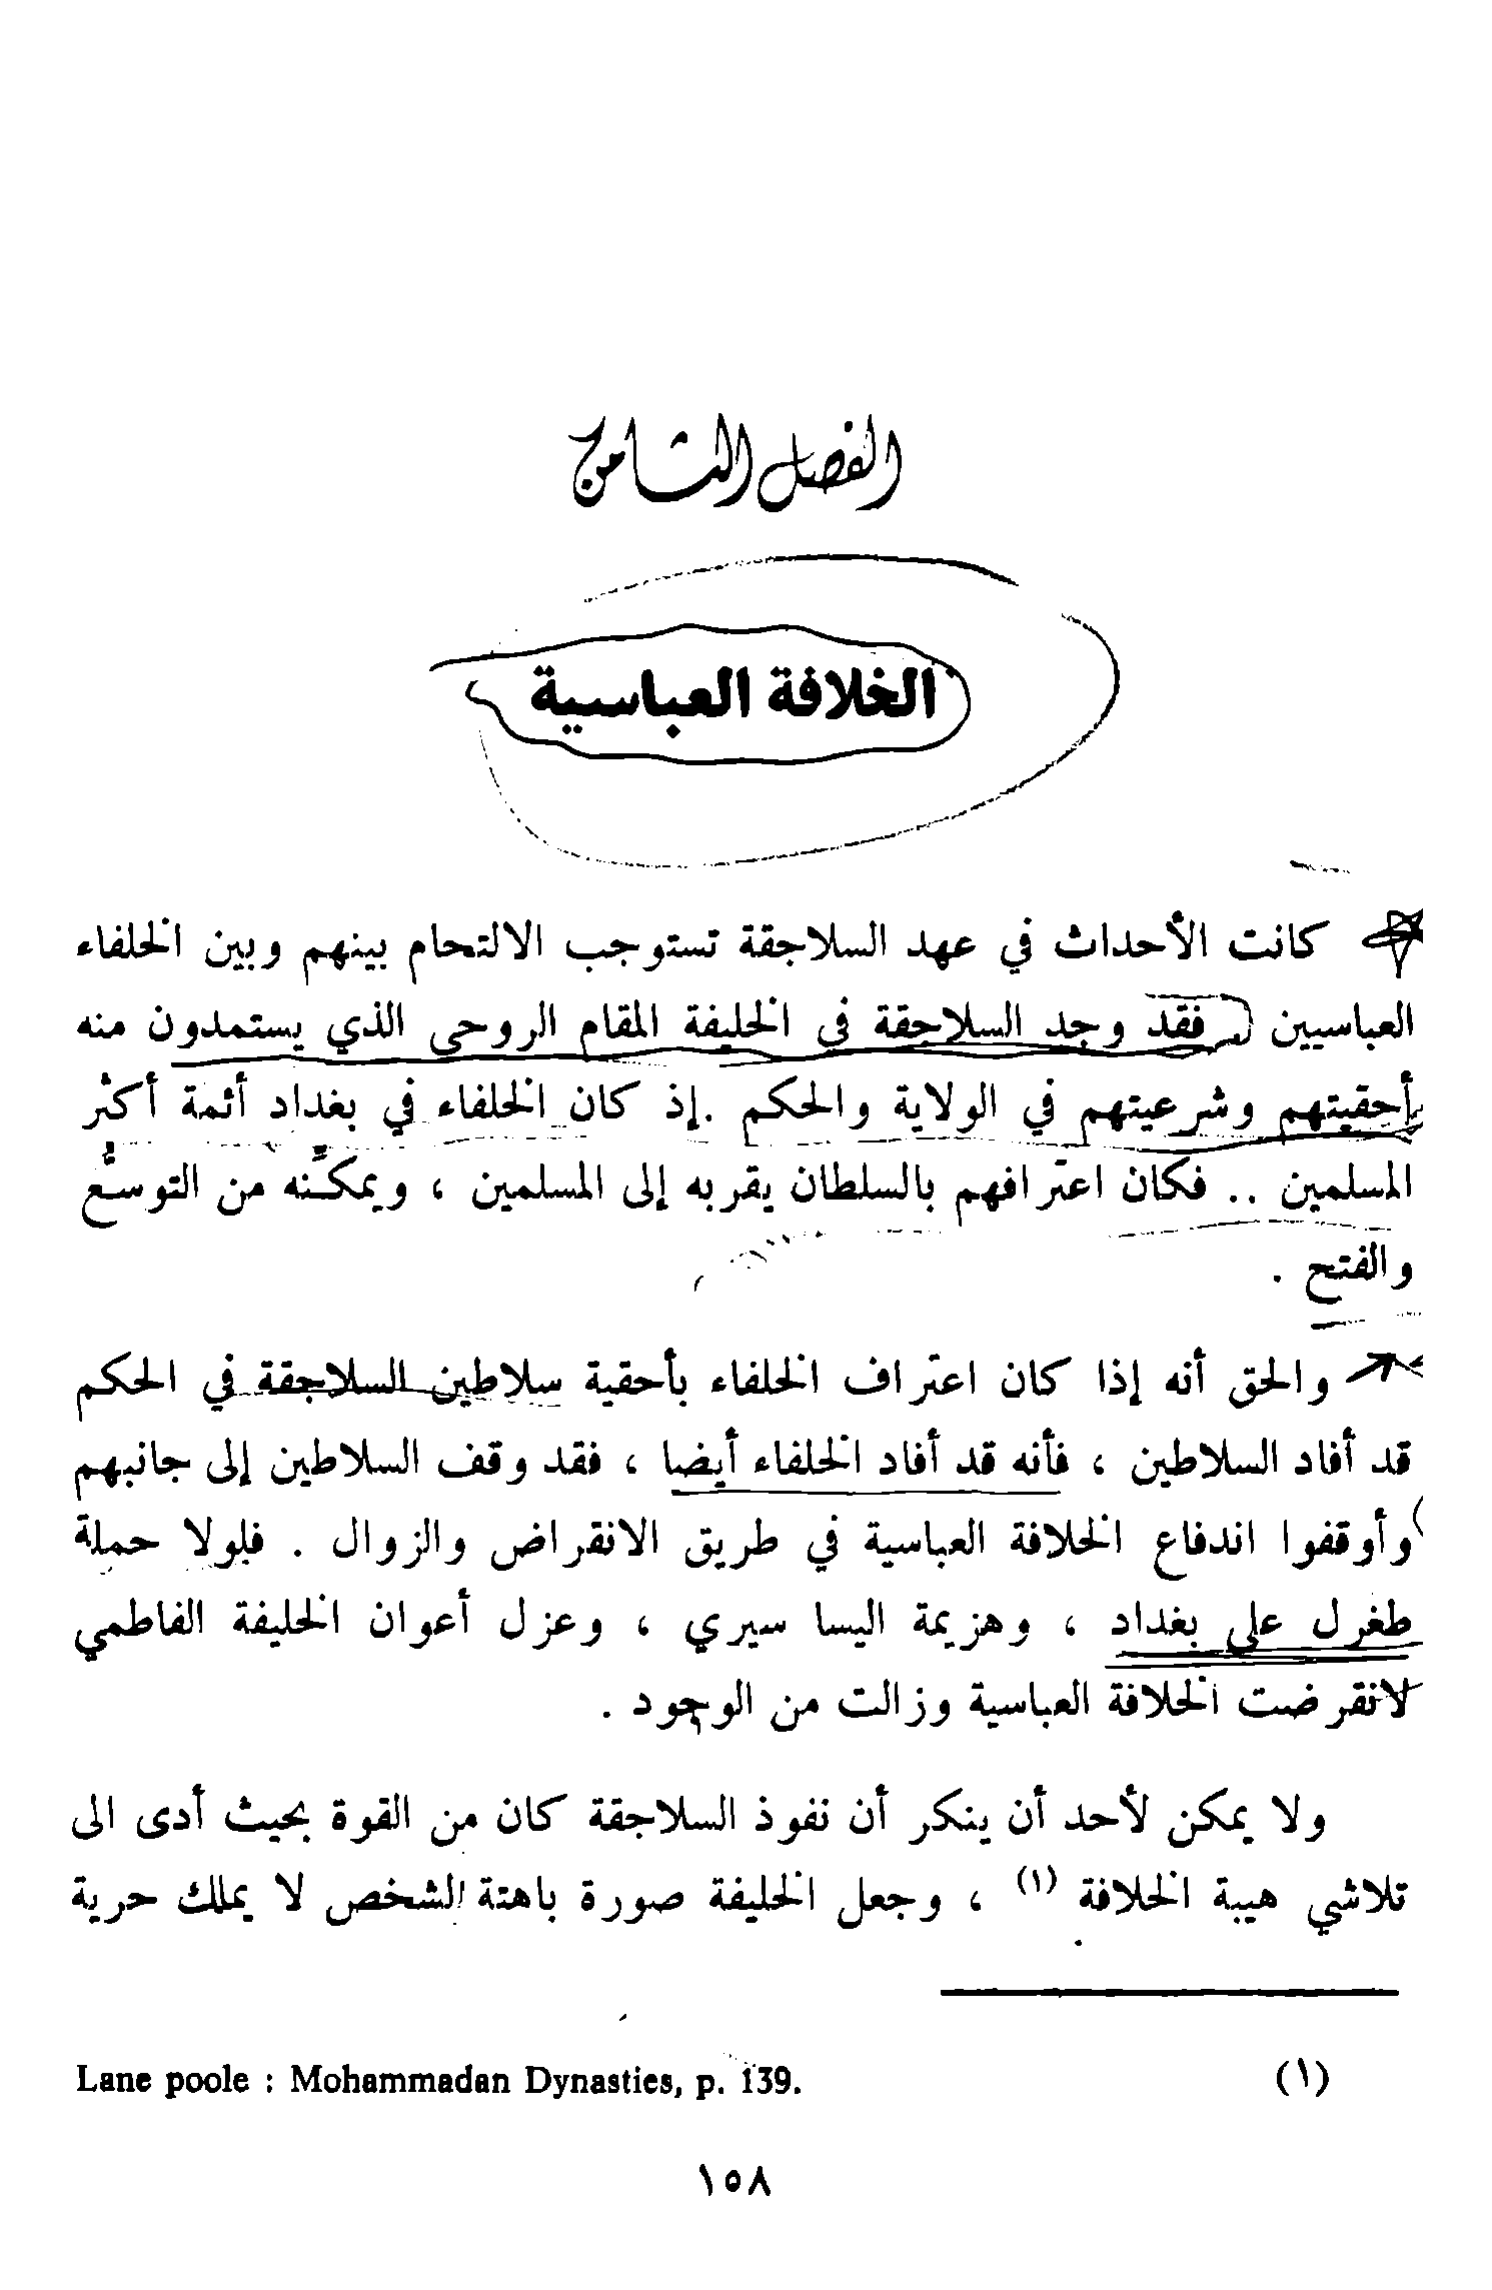 الفصل الثامن
الخلافة العباسية
كانت الأحداث في عهد السلاجقة تستوجب الالتحام بينهم وبين الخلفاء
العباسيين فقد وجد السلاجقة في الخليفة المقام الروحي الذي يستمدون منه
أحقيتهم وشرعيتهم في الولاية والحكم . إذ كان الخلفاء في بغداد أئمة أكثر
المسلمين .. فكان اعترافهم بالسلطان يقربه إلى المسلمين ، ويمكِّنه من التوسُّع
والفتح .
والحق أنه إذا كان اعتراف الخلفاء بأحقية سلاطين السلاجقة في الحكم
قد أفاد السلاطين ، فأنه قد أفاد الخلفاء أيضا ، فقد وقف السلاطين إلى جانبهم
وأوقفوا اندفاع الخلافة العباسية في طريق الانقراض والزوال . فلولا حملة
طغرل على بغداد ، وهزيمة اليسا سيري ، وعزل أعوان الخليفة الفاطمي
لانقرضت الخلافة العباسية وزالت من الوجود .
ولا يمكن لأحد أن ينكر أن نفوذ السلاجقة كان من القوة بحيث أدى الى
تلاشي هيبة الخلافة (١) ، وجعل الخليفة صورة باهتة لشخص لا يملك حرية
(١) Lane poole : Mohammadan Dynasties, p. 139.
١٥٨